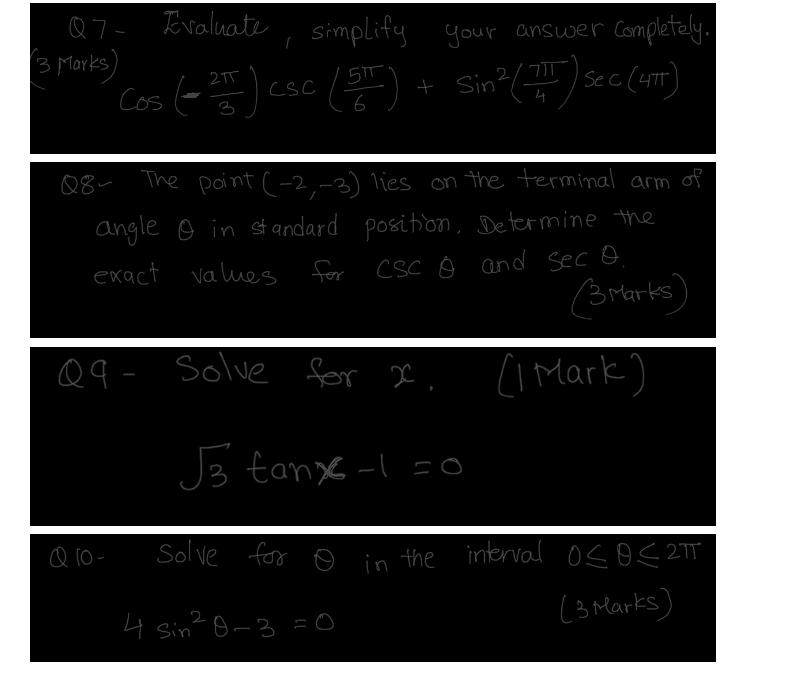 Q7- Evaluate, simplify your answer completely.
(3 Marks)
Cos (-2π/3) csc (5π/6) + Sin²(7π/4) Sec(4π)
Q8- The point (-2,-3) lies on the terminal arm of
angle θ in standard position. Determine the
exact values for csc θ and sec θ.
(3 Marks)
Q9- Solve for x. (1 Mark)
√3 tanx -1 = 0
Q10- Solve for θ in the interval 0≤θ≤2π
(3 Marks)
4 sin²θ-3 = 0